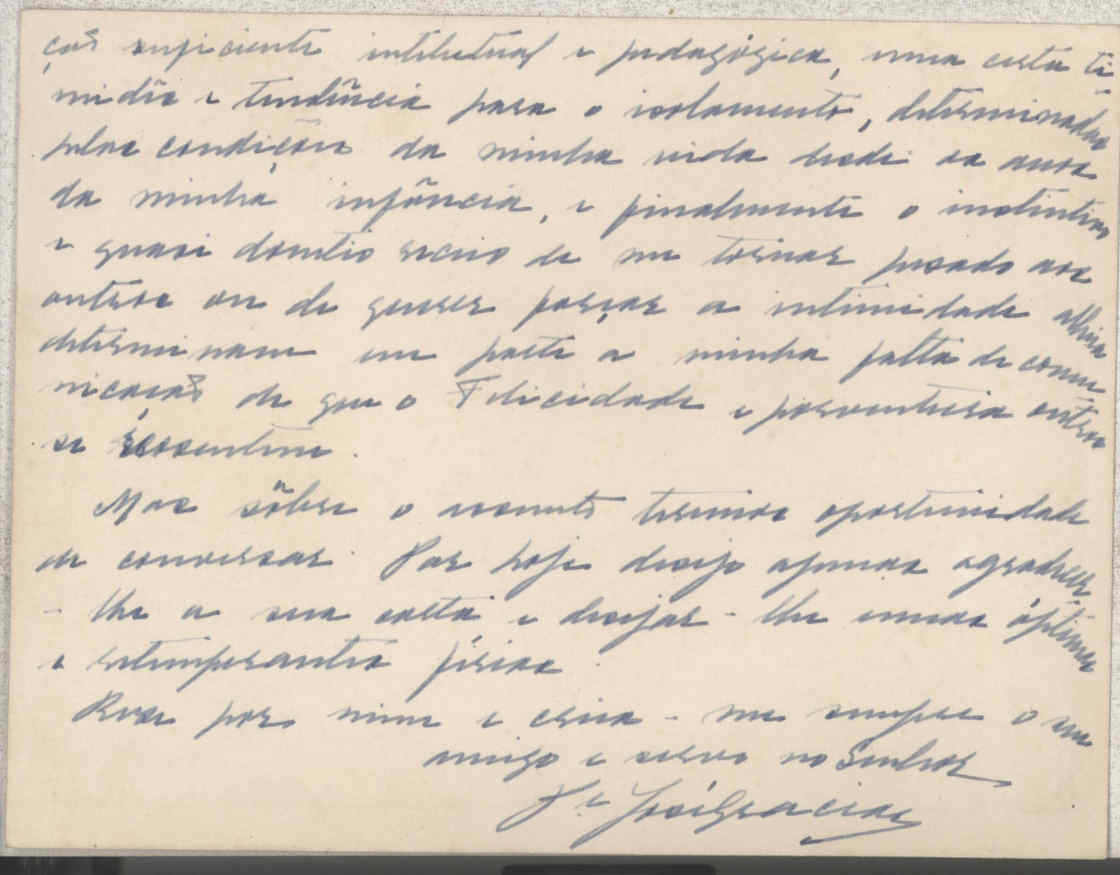 ção suficiente intelectual e pedagógica, uma certa ti-
midês e tendência para o isolamento, determinadas
pelas condições da minha vida desde os anos
da minha infância, e finalmente o instintivo
e quasi doentio receio de me tornar pesado aos
outros ou de querer forçar a intimidade alheia
determinam em parte a minha falta de comu
nicação de que o Felicidade e porventura outros
se ressentem.
Mas sôbre o assunto teremos oportunidade
de conversar. Por hoje desejo apenas agradecer
-lhe a sua carta e desejar-lhe umas óptimas
e retemperantes férias.
Reze por mim e creia-me sempre o seu
amigo e servo no Senhor
Pe José Gracias